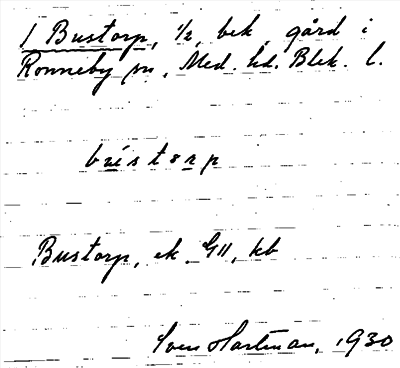 1 Bustorp, 1/2, bek. gård i
Ronneby sn, Med. hd. Blek. l.
Bustorp, ek. G11, kb
Sven Hartman, 1930